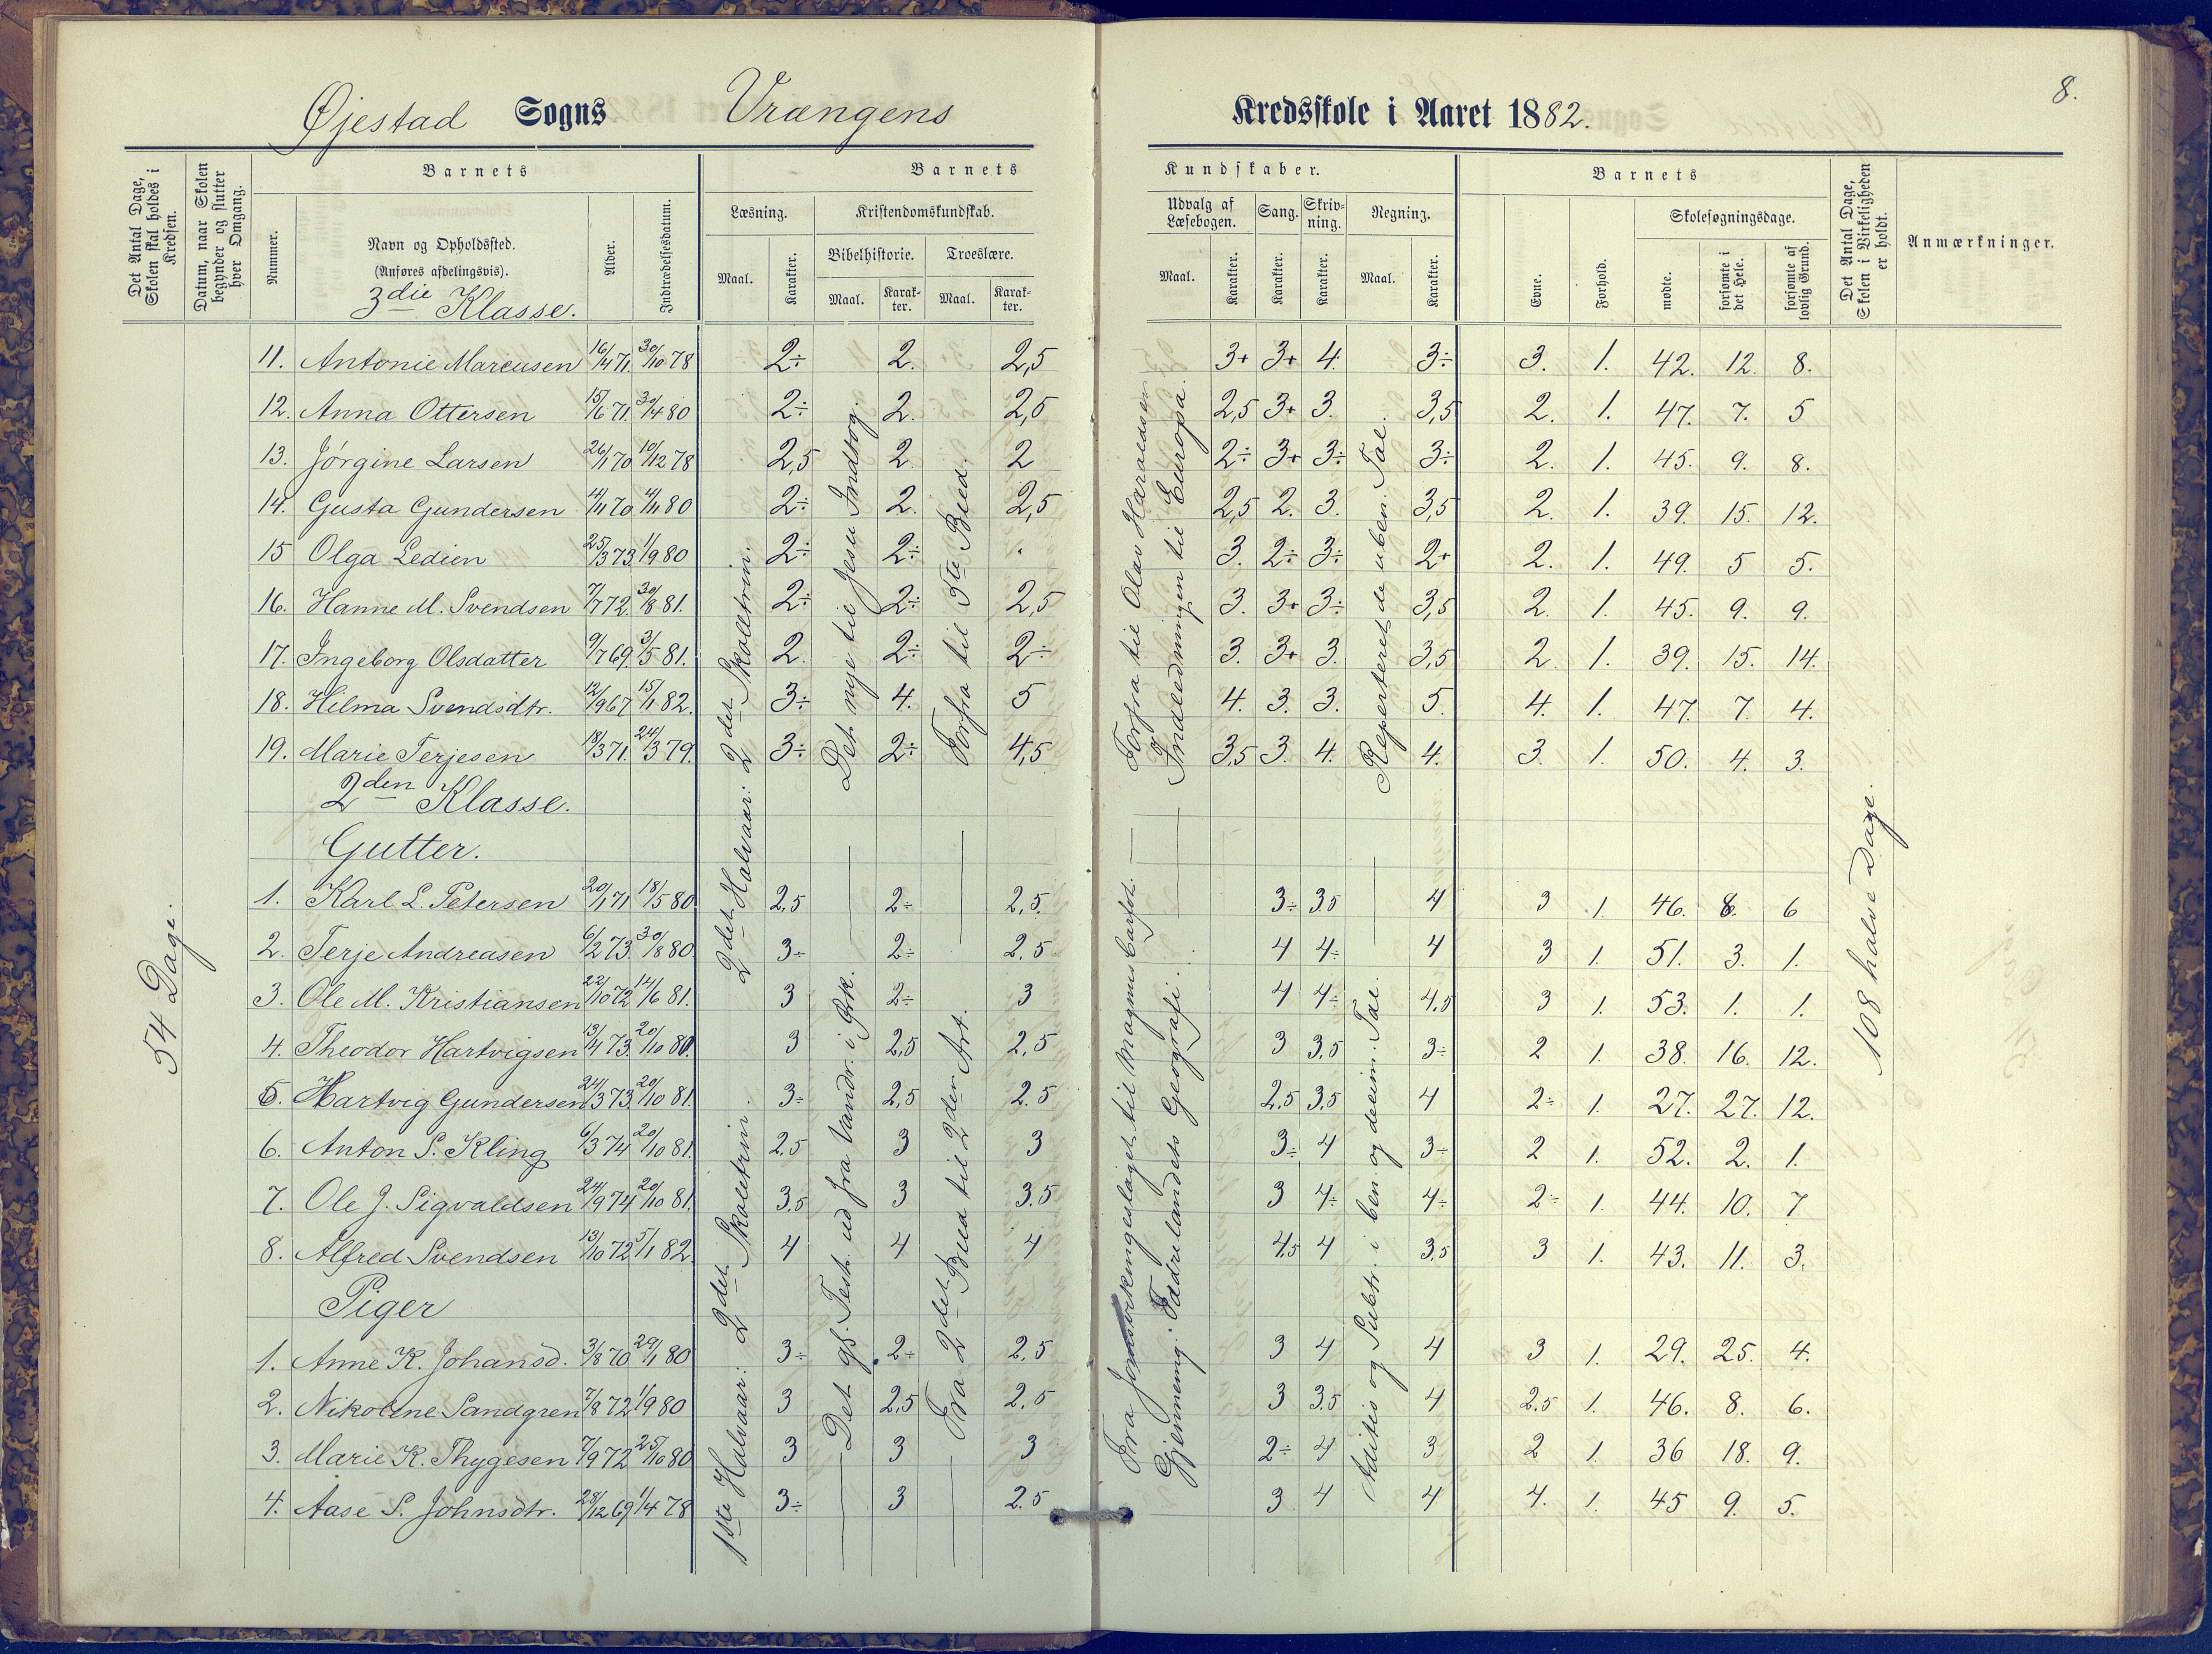 Øjestad Sogns Vrængens Kredsskole i Aaret 1882. 8.
Det Antal Dage, Skolen skal holdes i Kredsen.
Datum, naar Skolen begynder og slutter hver Omgang.
Barnets
Nummer.
Navn og Opholdssted.
(Anføres afdelingsvis).
3die Klasse.
Alder.
Indtrædelsesdatum.
Barnets Kundskaber.
Læsning.
Maal. Karakter.
Kristendomskundskab.
Bibelhistorie. Troeslære.
Maal. Karakter. Maal. Karakter.
Udvalg af Læsebogen. Sang. Skrivning. Regning.
Maal. Karakter. Karakter. Karakter. Maal. Karakter.
Barnets
Evne. Forhold.
Skolesøgningsdage.
mødte. forsømte i det Hele. forsømte af lovlig Grund.
Det Antal Dage, Skolen i Virkeligheden er holdt.
Anmærkninger.
54 Dage.
11. Antonie Marcusen 16/4 71. 30/10 78 2÷ 2. 2,5 3+ 3+ 4. 3÷ 3. 1. 42. 12. 8.
12. Anna Ottersen 15/6 71. 30/4 80 2÷ 2. 2,5 2,5 3+ 3. 3,5 2. 1. 47. 7. 5
13. Jørgine Larsen 26/1 70 10/12 78 2,5 2. 2 2÷ 3+ 3÷ 3÷ 2. 1. 45. 9. 8.
14. Gusta Gundersen 4/11 70 4/11 80 2÷ 2. 2,5 2,5 2. 3. 3,5 2. 1. 39. 15. 12.
15 Olga Ledien 25/3 73. 1/9 80 2÷ 2÷ . 3. 2÷ 3÷ 2+ 2. 1. 49. 5 5.
16. Hanne M. Svendsen 7/7 72. 30/8 81. 2÷ 2÷ 2,5 3. 3+ 3÷ 3,5 2. 1. 45. 9. 9.
17. Ingeborg Olsdatter 9/7 69. 3/5 81. 2. 2÷ 2÷ 3. 3+ 3. 3,5 2. 1. 39. 15. 14.
18. Hilma Svendsdtr. 12/9 67 15/1 82. 3÷ 4. 5 4. 3. 3. 5. 4. 1. 47. 7. 4.
19. Marie Terjesen 18/3 71. 24/3 79. 3÷ 2÷ 4,5 3,5 3. 4. 4. 3. 1. 50. 4. 3.
2den Klasse.
Gutter.
1. Karl L. Petersen 20/1 71 18/5 80 2,5 2÷ 2,5. 3÷ 3,5 4 3 1. 46. 8. 6
2. Terje Andreasen 6/2 73. 30/8 80 3÷ 2÷ 2,5 4 4÷ 4 3 1. 51. 3. 1.
3. Ole M. Kristiansen 22/10 72 14/6 81. 3 2÷ 3 4 4÷ 4,5 3 1. 53. 1. 1.
4. Theodor Hartvigsen 13/4 73. 20/10 80. 3 2,5 2,5 3 3,5 3÷ 2 1. 38. 16. 12.
5. Hartvig Gundersen 24/3 73. 20/10 81. 3÷ 2,5 2.5 2,5 3,5 4 2÷ 1. 27. 27. 12.
6. Anton S. Kling 6/3 74 20/10 81. 2.5 3 3 3÷ 4 3÷ 2 1. 52. 2. 1.
7. Ole J. Sigvaldsen 24/9 74 20/10 81. 3,5 3 3.5 3 4÷ 4÷ 2÷ 1. 44. 10. 7
8. Alfred Svendsen 13/10 72 5/1 82. 4 4 4 4,5 4 3,5 3 1. 43. 11. 3.
Piger
1. Anne K. Johansd. 3/8 70 29/1 80 3÷ 2÷ 2.5 3 4 4 3 1. 29. 25. 4.
2. Nikoline Sandgren 7/8 72 1/9 80 3 2,5 2.5 3 3,5 4 2.5 1. 46. 8. 6.
3. Marie K. Thygesen 7/9 72 25/10 80 3 3 3 2÷ 4 3 2 1. 36 18. 9.
4. Aase S. Johnsdtr. 28/12 69 1/4 78 3÷ 3 2.5 3 4 4 4. 1. 45 9. 5.
1ste Halvaar: 2det Skoletrin.
2det Halvaar: 2det Skoletrin.
Det nye til Jesu Indtog.
Det gl. Test. ud fra Vandr. i Ørk.
Forfra til 5te Bud.
Fra 2det Bud til 2den Art.
Forfra til Olav Haraldsen
Indledningen til Europa.
Fra til Magnus Barfot.
Gjennemg. Fædrelandets Geografi.
Repeteret de uben. Tal.
Aditio og Subtr. i ben og decim. Tal.
108 halve Dage.